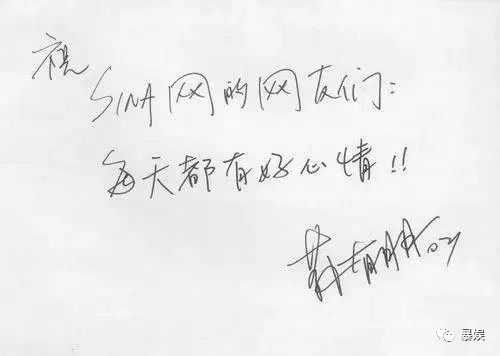 祝
SINA网的网友们:
每天都有好心情!!
暴娱